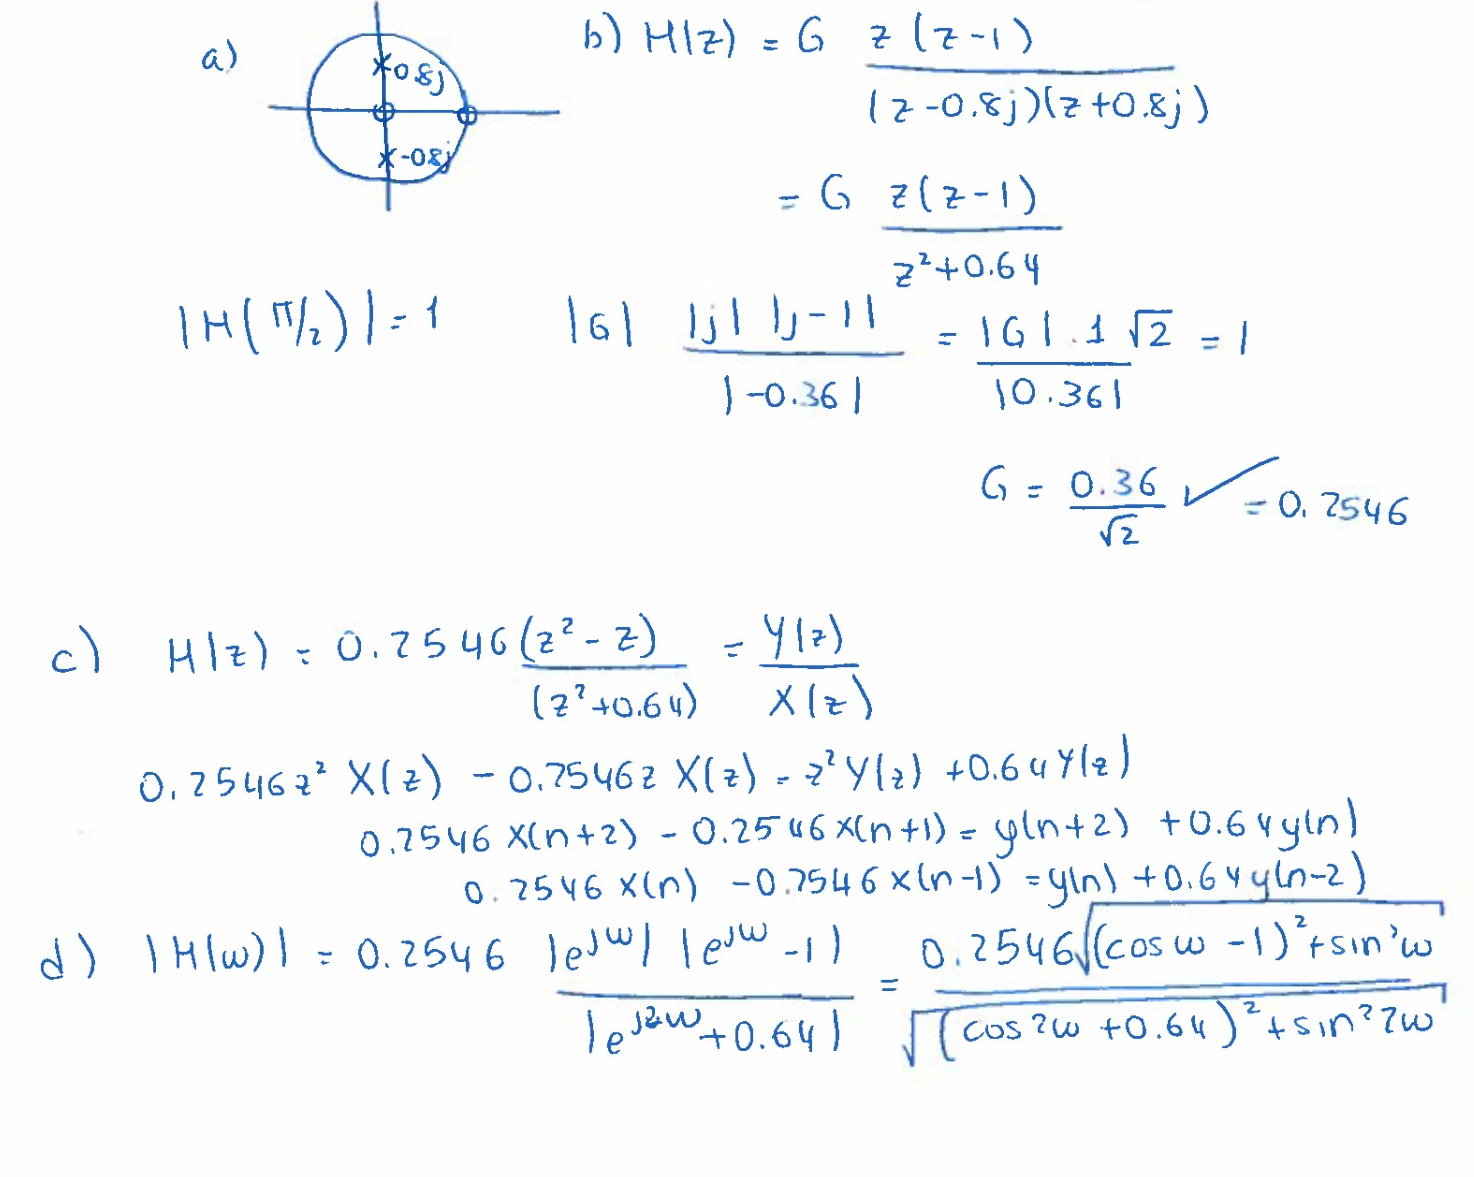 a) 0.8j -0.8j
b) H(z) = G z(z-1) / (z-0.8j)(z+0.8j)
= G z(z-1) / z²+0.64
|H(π/2)| = 1 |G| |j| |j-1| / |-0.36| = |G|.1 √2 / |0.36| = 1
G = 0.36 / √2 ✓ = 0.2546
c) H(z) = 0.2546 (z²-z) / (z²+0.64) = Y(z) / X(z)
0.2546z² X(z) - 0.2546z X(z) = z²Y(z) +0.64Y(z)
0.2546 x(n+2) - 0.2546 x(n+1) = y(n+2) +0.64y(n)
0.2546 x(n) -0.2546 x(n-1) = y(n) +0.64y(n-2)
d) |H(ω)| = 0.2546 |e^jω| |e^jω -1| / |e^j2ω +0.64| = 0.2546√((cos ω -1)²+sin²ω) / √((cos2ω +0.64)²+sin²2ω)